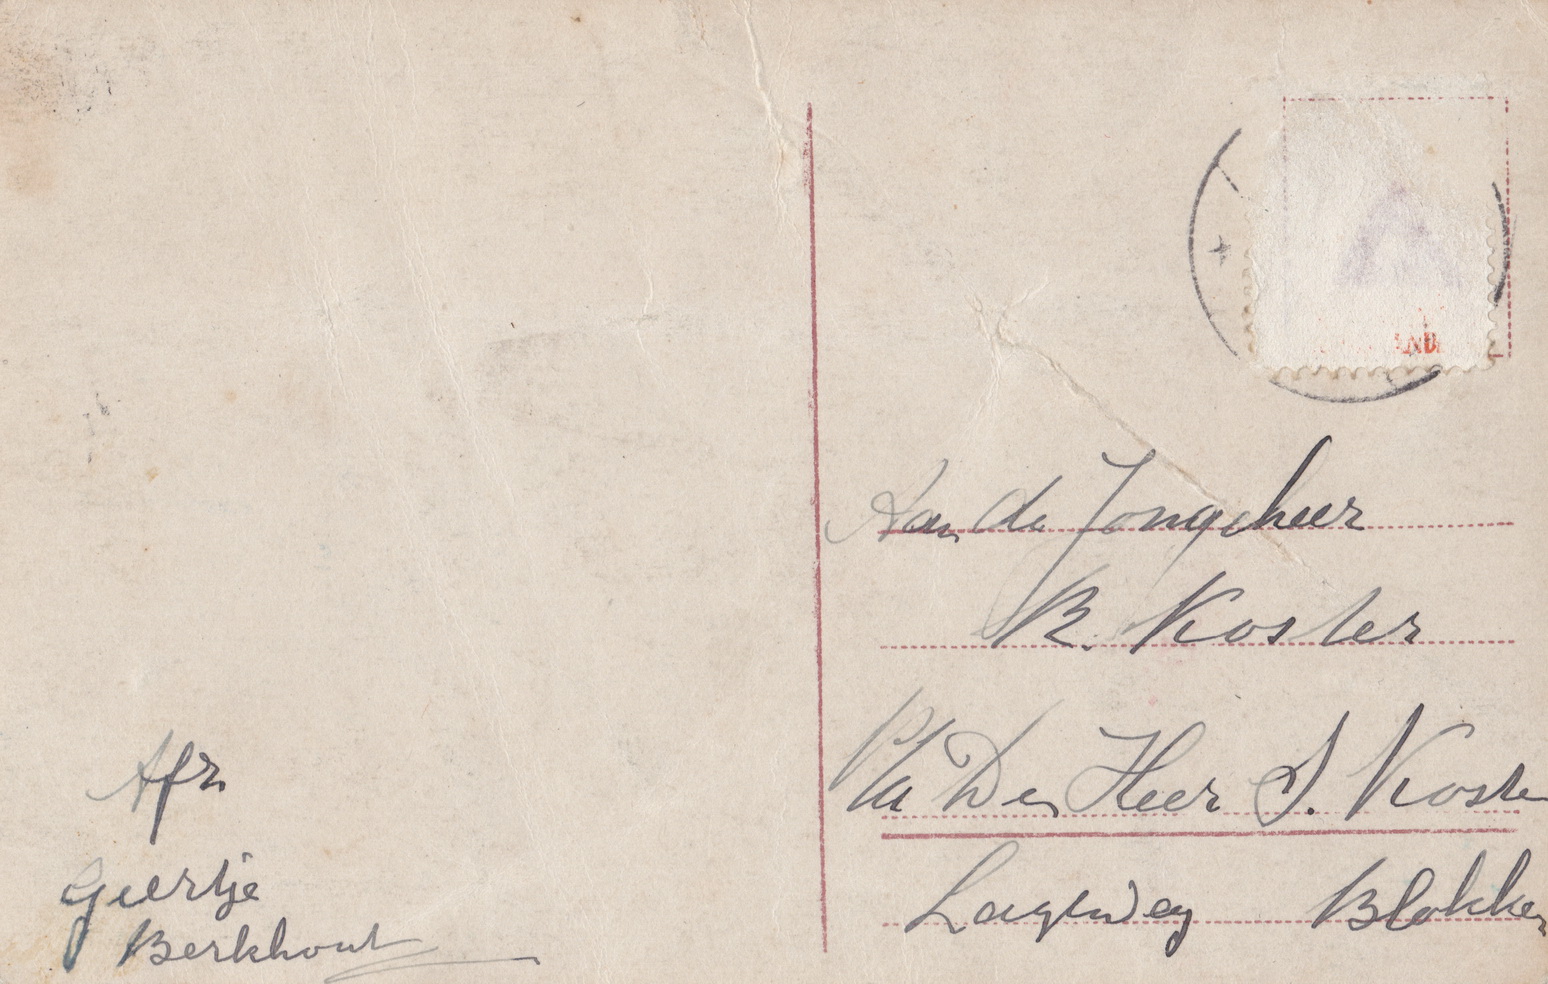 Afz
Geertje
Berkhout
Aan de Jongeheer
R. Koster
P/a Den Heer S. Koster
Lageweg Blokker